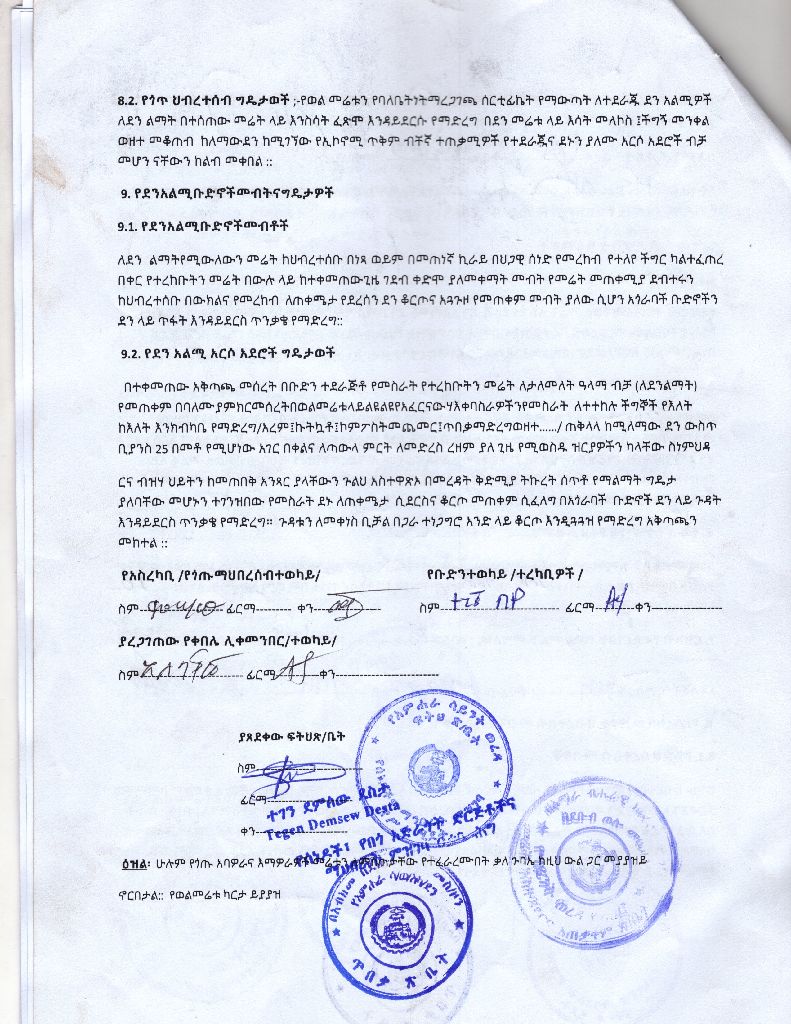 8.2. የጎጥ ህብረተሰብ ግዴታወች ;-የወል መሬቱን የባለቤትነትማረጋገጫ ሰርቲፊኬት የማውጣት ለተደራጁ ደን አልሚዎች
ለደን ልማት በተሰጠው መሬት ላይ እንስሳት ፈጽሞ እንዳይደርሱ የማድረግ በደን መሬቱ ላይ እሳት መለኮስ ፤ችግኝ መንቀል
ወዘተ መቆጠብ ከለማውደን ከሚገኘው የኢኮኖሚ ጥቅም ብቸኛ ተጠቃሚዎች የተደራጁና ደኑን ያለሙ አርሶ አደሮች ብቻ
መሆን ናቸውን ከልብ መቀበል ::
9. የደንአልሚቡድኖችመብትናግዴታዎች
9.1. የደንአልሚቡድኖችመብቶች
ለደን ልማትየሚውለውን መሬት ከህብረተሰቡ በነጻ ወይም በመጠነኛ ኪራይ በህጋዊ ሰነድ የመረከብ የተለየ ችግር ካልተፈጠረ
በቀር የተረከቡትን መሬት በውሉ ላይ ከተቀመጠውጊዜ ገደብ ቀድሞ ያለመቀማት መብት የመሬት መጠቀሚያ ደብተሩን
ከህብረተሰቡ በውክልና የመረከብ ለጠቀሜታ የደረሰን ደን ቆርጦና አጓጉዞ የመጠቀም መብት ያለው ሲሆን አጎራባች ቡድኖችን
ደን ላይ ጥፋት እንዳይደርስ ጥንቃቄ የማድረግ::
9.2. የደን አልሚ አርሶ አደሮች ግዴታወች
በተቀመጠው አቅጣጫ መሰረት በቡድን ተደራጅቶ የመስራት የተረከቡትን መሬት ለታለመለት ዓላማ ብቻ (ለደንልማት)
የመጠቀም በባለሙያምክርመሰረትበወልመሬቱላይልዩልዩየአፈርናውሃእቀባስራዎችንየመስራት ለተተከሉ ችግኞች የእለት
ከእለት እንክብካቤ የማድረግ/አረም፤ኩትኳቶ፤ኮምፖስትመጨመር፤ጥበቃማድረግወዘተ....../ ጠቅላላ ከሚለማው ደን ውስጥ
ቢያንስ 25 በመቶ የሚሆነው አገር በቀልና ለጣውላ ምርት ለመድረስ ረዘም ያለ ጊዜ የሚወስዱ ዝርያዎችን ካላቸው ስነምህዳ
ርና ብዝሃ ህይትን ከመጠበቅ አንጻር ያላቸውን ጉልህ አስተዋጽኦ በመረዳት ቅድሚያ ትኩረት ሰጥቶ የማልማት ግዴታ
ያለባቸው መሆኑን ተገንዝበው የመስራት ደኑ ለጠቀሜታ ሲደርስና ቆርጦ መጠቀም ሲፈልግ በአጎራባች ቡድኖች ደን ላይ ጉዳት
እንዳይደርስ ጥንቃቄ የማድረግ። ጉዳቱን ለመቀነስ ቢቻል በጋራ ተነጋግሮ አንድ ላይ ቆርጦ እንዲጓጓዝ የማድረግ አቅጣጫን
መከተል ::
የአስረካቢ /የጎጡማህበረሰብተወካይ/ የቡድንተወካይ /ተረካቢዎች /
ስም ፊርማ ቀን ስም ፊርማ ቀን
ያረጋገጠው የቀበሌ ሊቀመንበር/ተወካይ/
ስም ፊርማ ቀን
የአምሐራ ሳይንት ወረዳ
ፍትህ ጽ/ቤት
ያጸደቀው ፍትህጽ/ቤት
ስም
ፊርማ
ተገን ደምሰው ደስታ
Tegen Demsew Desta
ቀን
ዕዝል፡ ሁሉም የጎጡ አባዎራና እማዎራዎች የተፈራረሙበት ቃለ ጉባኤ ከዚህ ውል ጋር መያያዝይ
ኖርበታል:: የወልመሬቱ ካርታ ይያያዝ